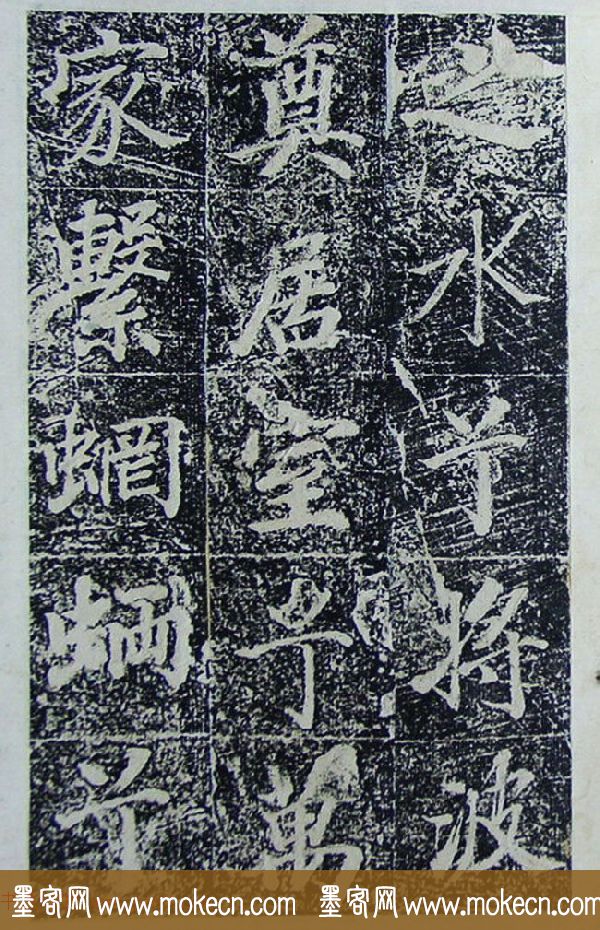 之水兮将波
奠居室兮萬
家繫蝄蜽兮
墨客网 www.mokecn.com 墨客网 www.mokecn.com